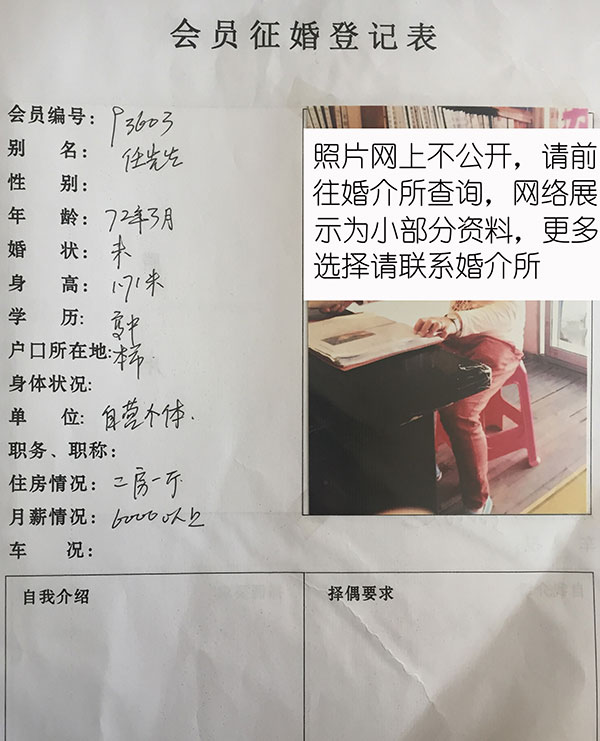 会员征婚登记表
会员编号: P3603
别 名: 任先生
性 别:
年 龄: 72年3月
婚 状: 未
身 高: 1.71米
学 历: 高中
户口所在地: 本市
身体状况:
单 位: 自营个体.
职务、职称:
住房情况: 二房一厅
月薪情况: 6000以上
车 况:
照片网上不公开，请前
往婚介所查询，网络展
示为小部分资料，更多
选择请联系婚介所
自我介绍
择偶要求